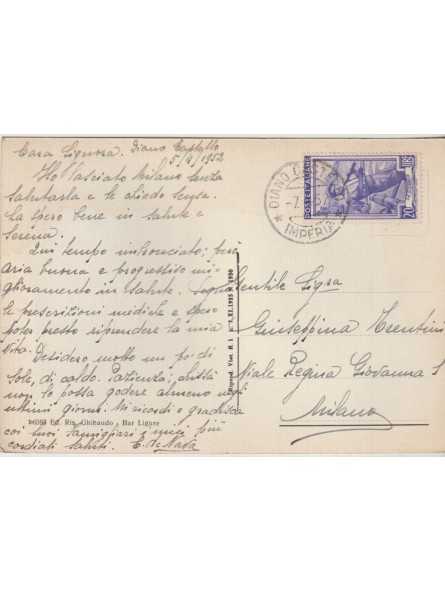 Cara Signora. Diano Castello
5/4/1952
Ho lasciato Milano senza
salutarla e le chiedo scusa.
La spero bene in salute e
serena.
Qui tempo imbronciato; però
aria buona e progressivo mi-
glioramento in salute. Seguo
le prescrizioni mediche e spero
poter presto riprendere la mia
vita. Desidero molto un po' di
sole, di caldo. Pazienza,
non lo potrà godere almeno negli
ultimi giorni. Mi ricordi e gradisca
coi suoi famigliari i miei più
cordiali saluti. E. de Nada
94053 Ed. Rip. Ghibaudo, Bar Ligure
Riprod. Viet. R. l. n° XI. 1925 N. 1950
DIANO
IMPERIA
POSTE ITALIANE
LIRE 20
Gentile Sig.ra
Giuseppina Trentini
Viale Regina Giovanna
Milano